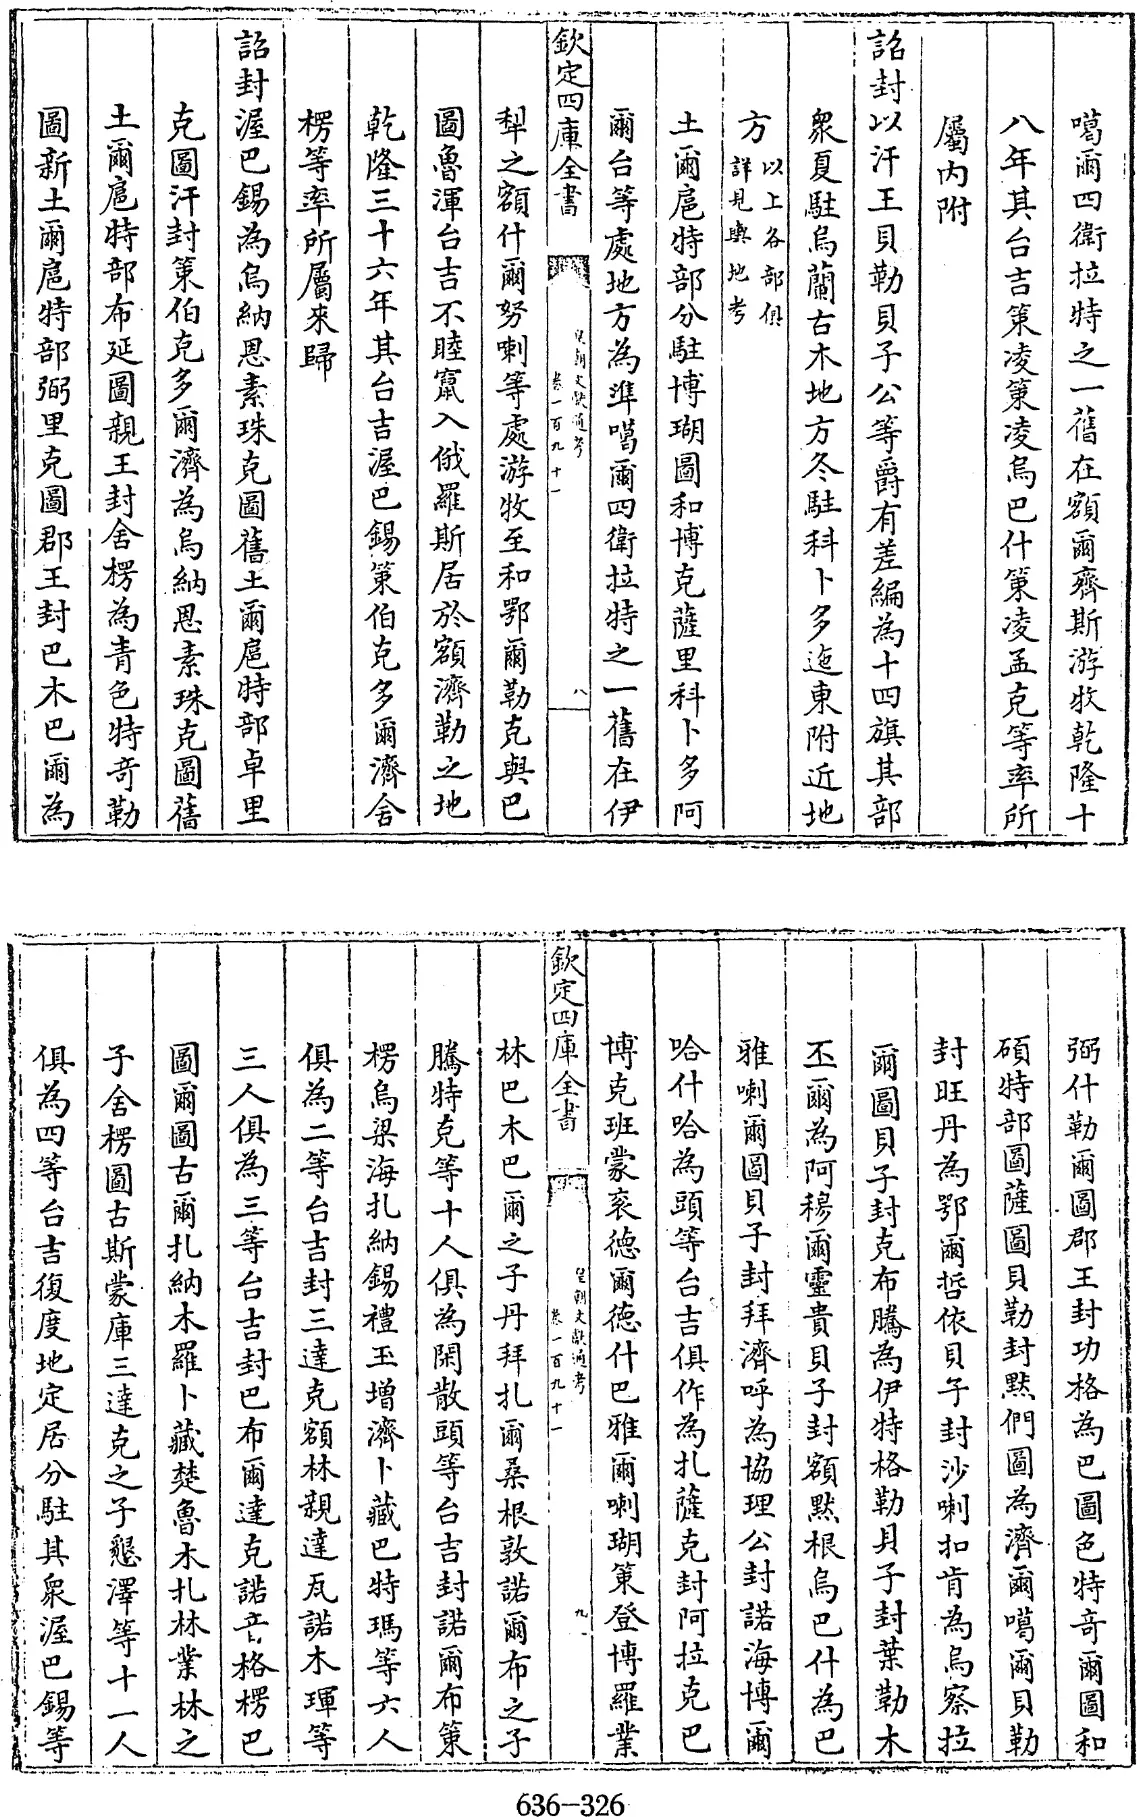 噶爾四衛拉特之一舊在額爾齊斯游牧乾隆十
八年其台吉策凌策凌烏巴什策凌孟克等率所
屬内附
詔封以汗王貝勒貝子公等爵有差編為十四旗其部
衆夏駐烏蘭古木地方冬駐科卜多迤東附近地
方以上各部俱詳見輿地考
土爾扈特部分駐博瑚圖和博克薩里科卜多阿
爾台等處地方為準噶爾四衛拉特之一舊在伊
欽定四庫全書
皇朝文獻通考
卷一百九十一
八
犁之額什爾努喇等處游牧至和鄂爾勒克與巴
圖魯渾台吉不睦竄入俄羅斯居於額濟勒之地
乾隆三十六年其台吉渥巴錫策伯克多爾濟舍
楞等率所屬來歸
詔封渥巴錫為烏納恩素珠克圖舊土爾扈特部卓里
克圖汗封策伯克多爾濟為烏納恩素珠克圖舊
土爾扈特部布延圖親王封舍楞為青色特奇勒
圖新土爾扈特部弼里克圖郡王封巴木巴爾為
弼什勒爾圖郡王封功格為巴圖色特奇爾圖和
碩特部圖薩圖貝勒封默們圖為濟爾噶爾貝勒
封旺丹為鄂爾哲依貝子封沙喇扣肯為烏察拉
爾圖貝子封克布騰為伊特格勒貝子封葉勒木
丕爾為阿穆爾靈貴貝子封額默根烏巴什為巴
雅喇爾圖貝子封拜濟呼為協理公封諾海博爾
哈什哈為頭等台吉俱作為扎薩克封阿拉克巴
博克班蒙衮德爾德什巴雅爾喇瑚策登博羅業
欽定四庫全書
皇朝文獻通考
卷一百九十一
九
林巴木巴爾之子丹拜扎爾桑根敦諾爾布之子
騰特克等十人俱為閑散頭等台吉封諾爾布策
楞烏梁海扎納錫禮玉增濟卜藏巴特瑪等六人
俱為二等台吉封三達克額林親達瓦諾木琿等
三人俱為三等台吉封巴布爾達克諾音格楞巴
圖爾圖古爾扎納木羅卜藏楚魯木扎林業林之
子舍楞圖古斯蒙庫三達克之子懇澤等十一人
俱為四等台吉復度地定居分駐其衆渥巴錫等
636-326